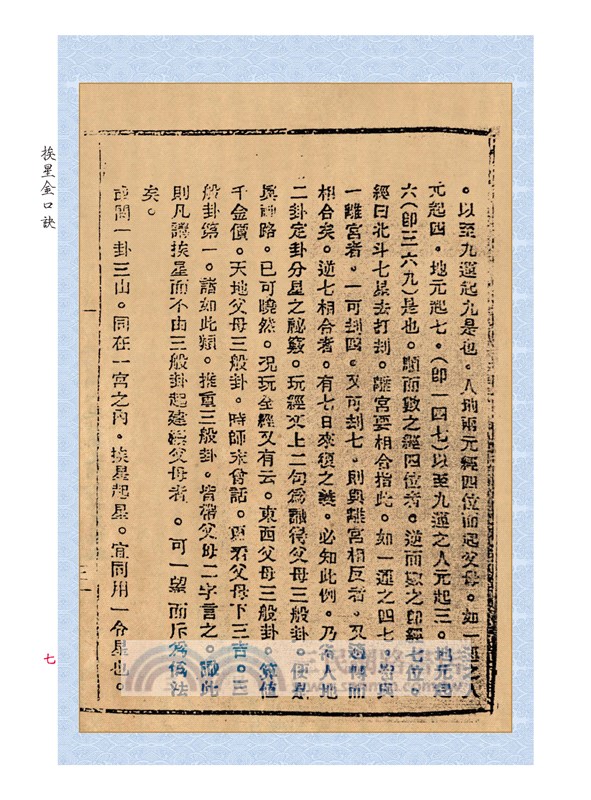 挨星金口訣
。以至九運起九是也。人地兩元經四位而起父母。如一運之人
元起四。地元起七。(即一四七)以至九運之人元起三。地元起
六(即三六九)是也。順而數之經四位者。逆而數之即經七位。
經曰北斗七星去打刼。離宮要相合指此。如一運之四七。皆與
一離宮者。一可刼四。又可刼七。則與離宮相反者。又適轉而
相合矣。逆七相合者。有七日來復之義。必知此例。乃有人地
二卦定卦分星之秘竅。玩經文上二句爲識得父母三般卦。便是
眞神路。已可曉然。况玩全經又有云。東西父母三般卦。算值
千金價。天地父母三般卦。時師未曾話。更看父母下三吉。三
般卦第一。諸如此類。推重三般卦。皆帶父母二字言之。
則凡講挨星而不由三般卦起達父母者。可一望而斥爲僞法
矣。
或問一卦三山。同在一宮之內。挨星起星。宜同用一令星也。
一
三一
七
三民網路書店